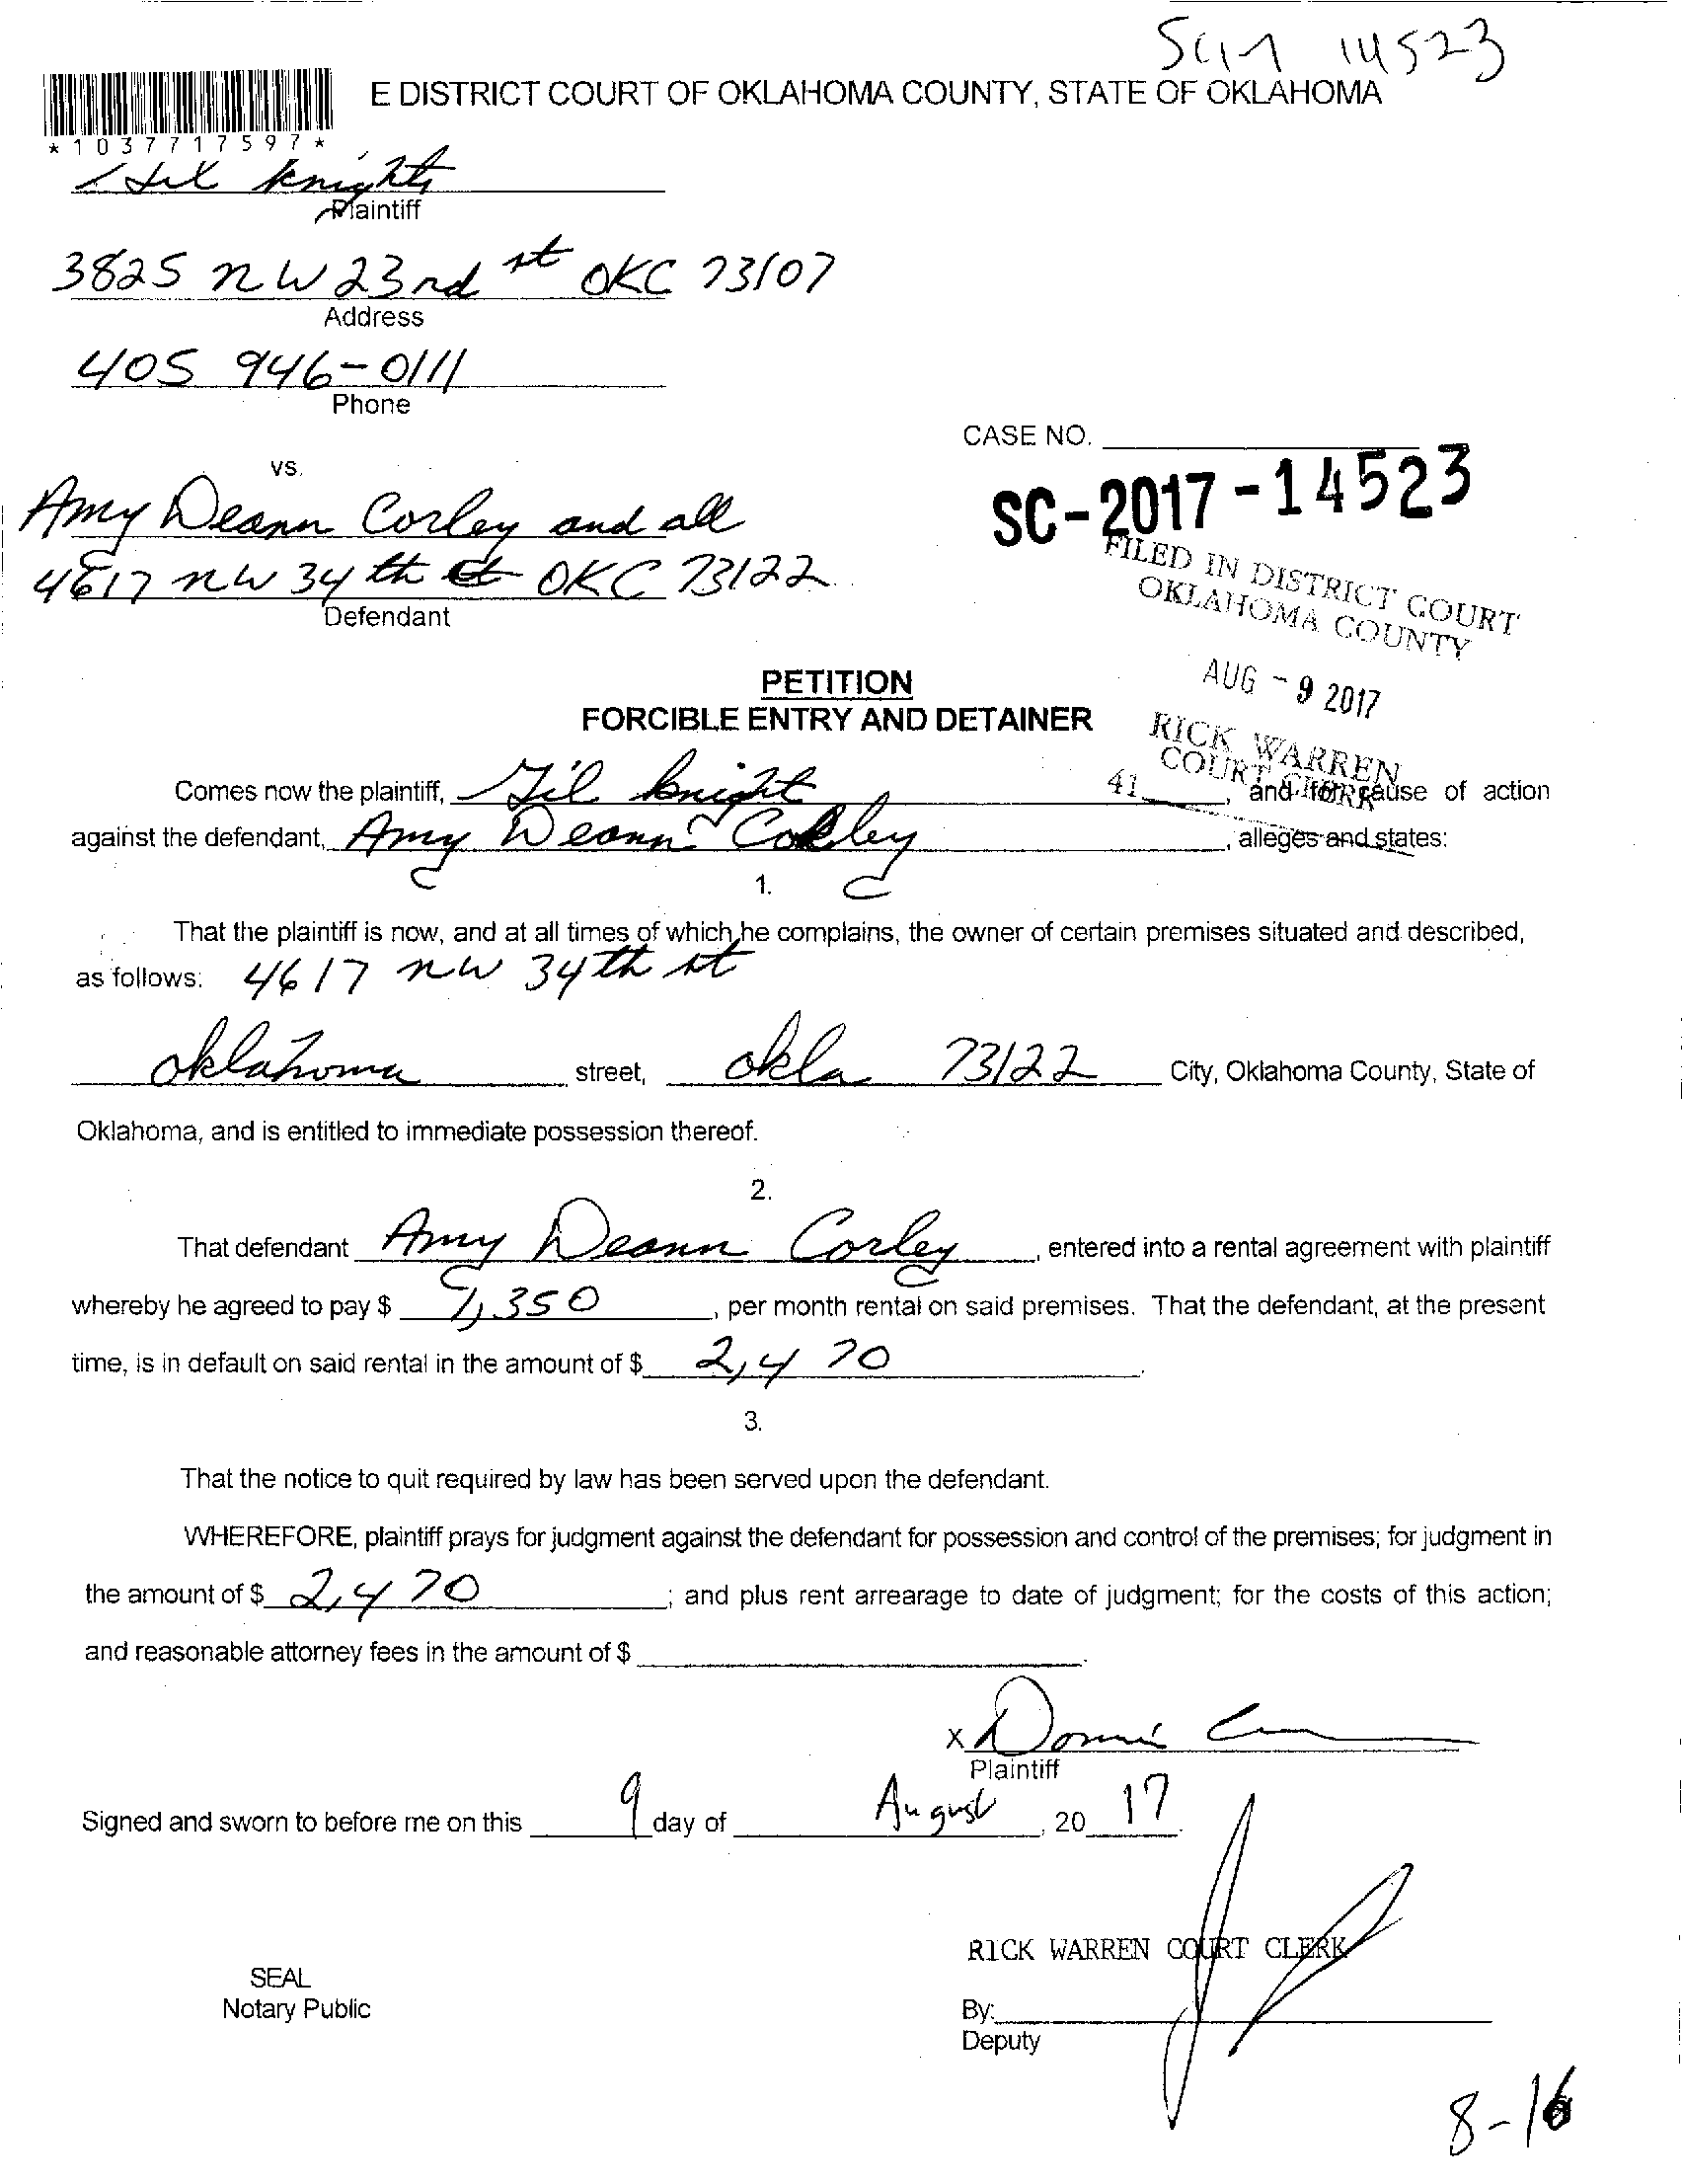 SC17 14523
E DISTRICT COURT OF OKLAHOMA COUNTY, STATE OF OKLAHOMA
*1037717597*
Gil Knight
Plaintiff
3825 NW 23rd st OKC 73107
Address
405 946-0111
Phone
CASE NO.
vs.
SC-2017-14523
Amy Deann Corley and all
4617 NW 34th st OKC 73122
Defendant
FILED IN DISTRICT COURT
OKLAHOMA COUNTY
AUG - 9 2017
RICK WARREN
COURT CLERK
41
PETITION
FORCIBLE ENTRY AND DETAINER
Comes now the plaintiff, Gil Knight, and for cause of action
against the defendant, Amy Deann Corley, alleges and states:
1.
That the plaintiff is now, and at all times of which he complains, the owner of certain premises situated and described,
as follows: 4617 NW 34th st
Oklahoma street, Okla 73122 City, Oklahoma County, State of
Oklahoma, and is entitled to immediate possession thereof.
2.
That defendant Amy Deann Corley, entered into a rental agreement with plaintiff
whereby he agreed to pay $ 1,350, per month rental on said premises. That the defendant, at the present
time, is in default on said rental in the amount of $ 2,470.
3.
That the notice to quit required by law has been served upon the defendant.
WHEREFORE, plaintiff prays for judgment against the defendant for possession and control of the premises; for judgment in
the amount of $ 2,470; and plus rent arrearage to date of judgment; for the costs of this action;
and reasonable attorney fees in the amount of $
X Donni
Plaintiff
Signed and sworn to before me on this 9 day of August, 20 17.
RICK WARREN COURT CLERK
SEAL
Notary Public
By:
Deputy
8-16